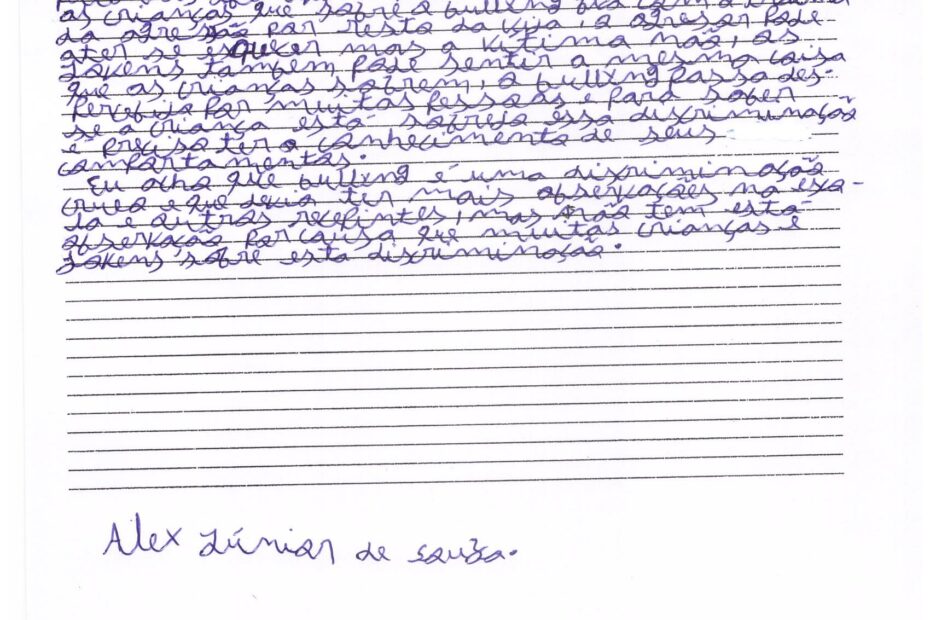 as crianças que sobre a bullxing fixa com a
da agre são par resto da vija, a agresor pode
ater se esquser mas a vitima não, as
jovens tambem pode sentir a mesma caisa
que as crianças sobrem, a bullxing passa des-
percebijo par muitas pessoas e para saber
se a criança está sobrejo essa discriminação
é preciso ter o conhecimento de seus
compartamentos.
Eu acho que bullxing é uma discriminação
cruea e que devia ter mais observações na exa-
da e outras recepintes, mas não tem esta
observação par causa que muitas crianças e
jovens sobre esta discriminação.
Alex Júnior de Souza.